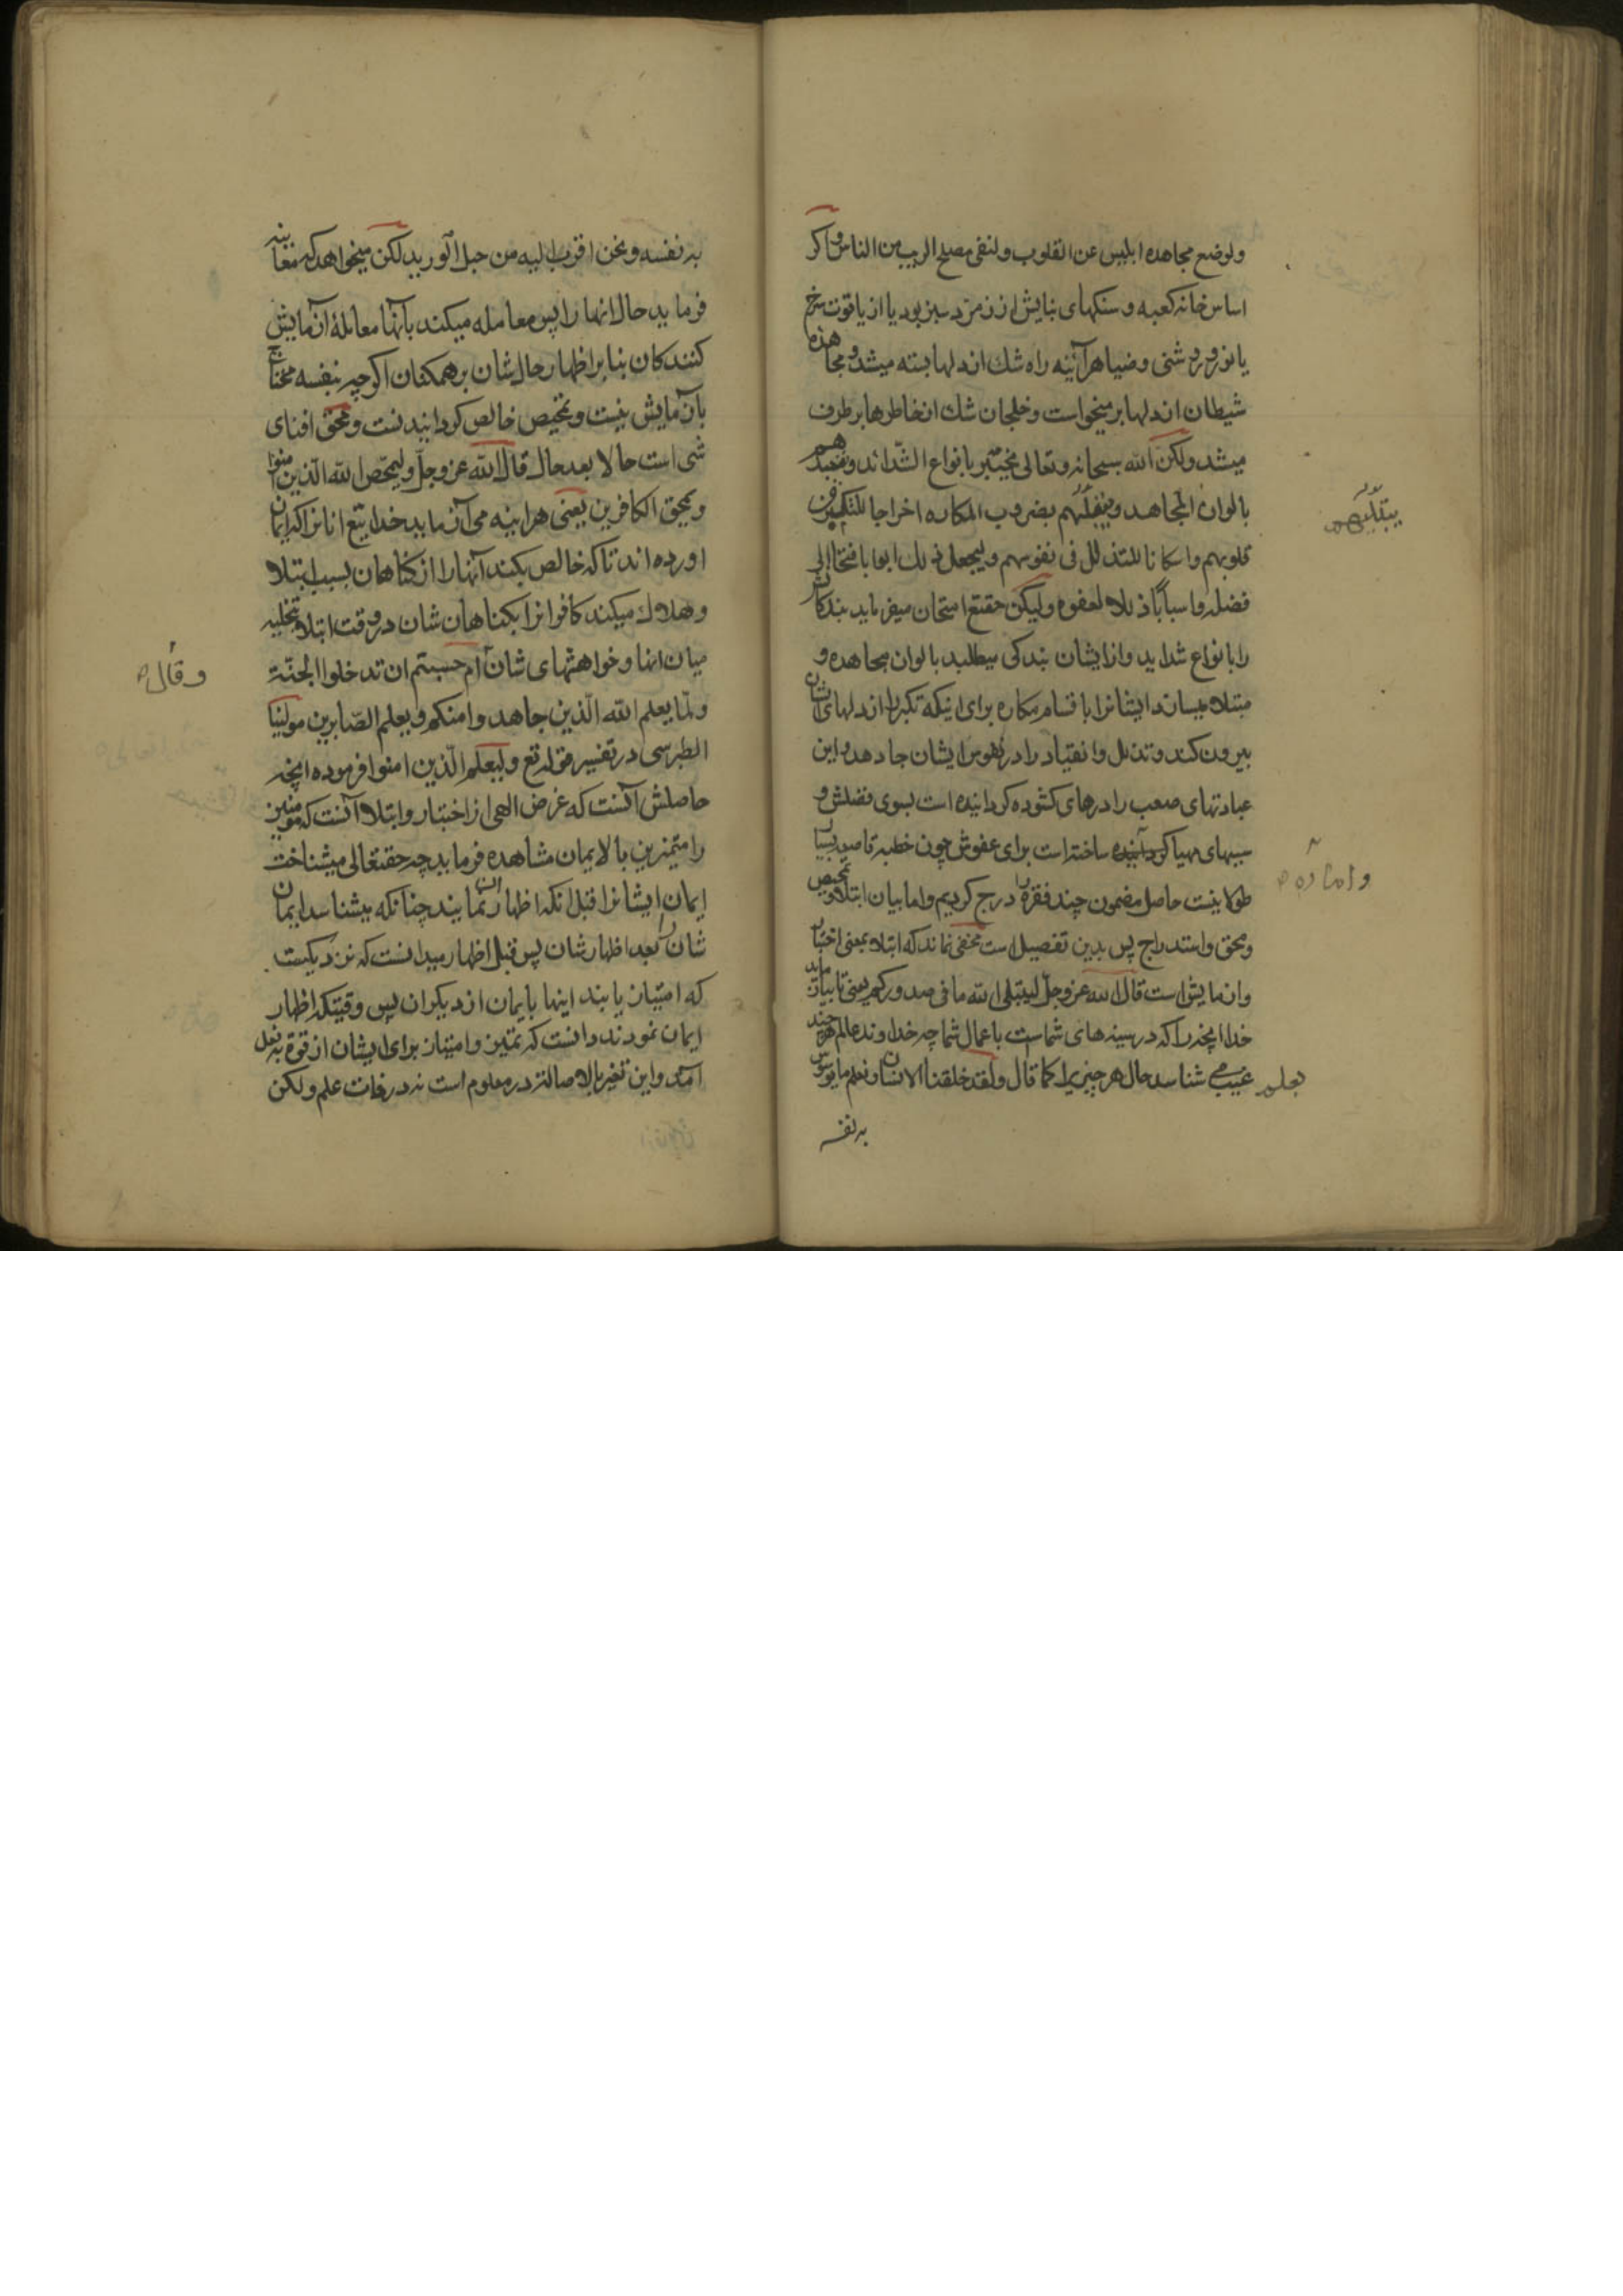 ولوضع مجاهده ابلیس عن القلوب ولنفی معتلج الریب من الناس و اکر
اساس خانه کعبه و سنکهای بنایش از زمرد سبز بود یا از یاقوت سرخ
یا نور و روشنی و ضیا هر آئینه راه شک از دلها بسته میشد و مجاهده
شیطان از دلها بر میخواست و خلجان شک از خاطرها بر طرف
میشد ولکن الله سبحانه وتعالی یختبر بانواع الشّدائد و یتعبدهم
بالوان المجاهد و یبتلیهم بضروب المکاره اخراجا للتکبر من
یبتلیهم
قلوبهم واسکانا للتذلل فی نفوسهم ولیجعل ذلک ابوابا فتحا الی
فضله واسبابًا ذللا لعفوه ولیکن حقتع امتحان میفرماید بندکانش
را بانواع شداید و از ایشان بندکی میطلبد بالوان مجاهده و
مبتلا میسازد ایشانرا باقسام مکاره برای اینکه تکبر را از دلهای شان
بیرون کند و تذلل و انقیاد را در نفوس ایشان جا دهد و این
عبادتهای صعب را درهای کشوده کردانیده است بسوی فضلش و
سببهای مهیا کردانیده ساخته است برای عفوش چون خطبه قاصعه بسیار
طولانیست حاصل مضمون چند فقره را درج کردیم و اما بیان ابتلا و تمحیص
ومحق واستدراج پس بدین تفصیل است مخفی نماند که ابتلا بمعنی اختبار
وازمایش است قال الله عز وجلّ لیبتلی الله ما فی صدورکم یعنی تا بیازماید
خدا انچه را که در سینه های شماست باعمال شما چه خداوند عالم هر چند
غیب می شناسد حال هر چیزیرا کما قال ولقد خلقنا الانسان ونعلم ما توسوس
به نفسه
به نفسه ونحن اقرب الیه من حبل الورید لکن میخواهد که معاینه
فرماید حال انها را پس معامله میکند بآنها معاملهٔ آزمایش
کنندکان بنابر اظهار حال شان بر همکنان اکرچه بنفسه محتاج
بآزمایش نیست و تمحیص خالص کردانیدنست و محق افنای
شی است حالا بعد حال قال الله عز وجلّ ولیمحّص الله الّذین امنوا
ویمحق الکافرین یعنی هراینه می آزماید خدایتع انانرا که ایمان
اورده اند تا که خالص بکند آنها را از کناهان بسبب ابتلا
وهلاک میکند کافرانرا بکناهان شان در وقت ابتلا و تخلیه
میان انها و خواهشهای شان ام حسبتم ان تدخلوا الجنّة
وقال
ولمّا یعلم الله الّذین جاهدوا منکم ویعلم الصّابرین مولینا
الطبرسی در تفسیر قوله تع ولیعلم الّذین امنوا فرموده انچه
حاصلش آنست که غرض الهی از اختبار و ابتلا آنست که مومنین
را متمیزین بالایمان مشاهده فرماید چه حقتعالی میشناخت
ایمان ایشانرا قبل انکه اظهار آن نمایند چنانکه میشناسد ایمان
شان را بعد اظهار شان پس قبل اظهار میدانست که نزدیکست
که امتیاز یابند اینها بایمان از دیکران پس وقتیکه اظهار
ایمان نمودند دانست که تمیّز و امتیاز برای ایشان از قوة به فعل
آمد و این تغیر بالاصاله در معلوم است نه در ذات علم ولکن